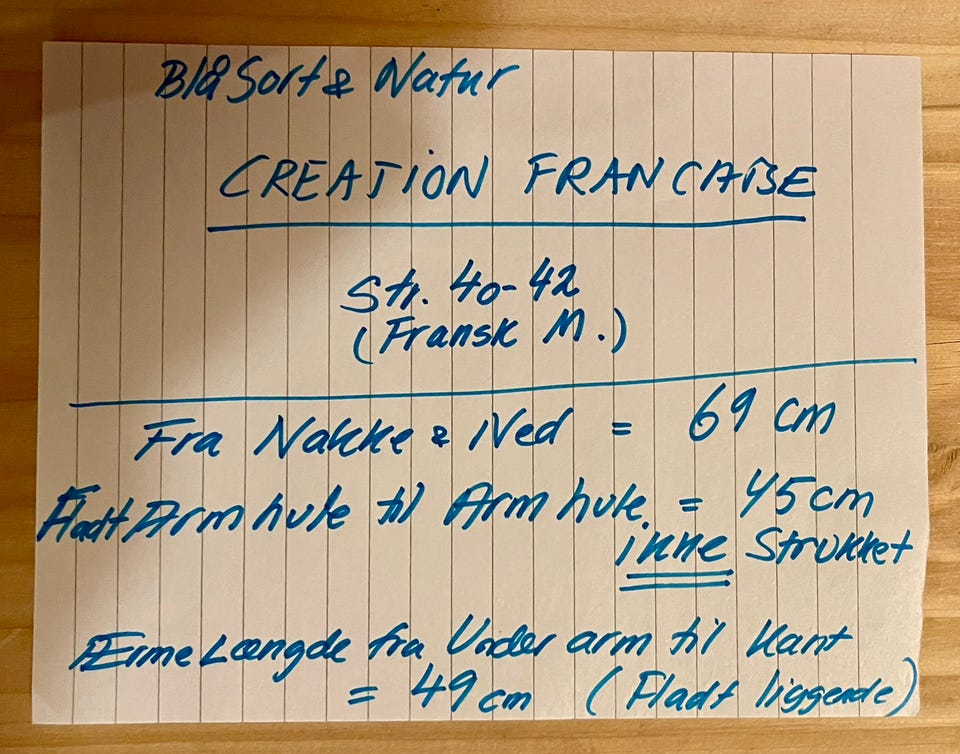 Blå Sort & Natur
CREATION FRANCAISE
Str. 40-42
(Fransk M.)
Fra Nakke & Ned = 69 cm
Fladt Armhule til Armhule. = 45 cm
ikke Strukket
Ærme Længde fra Under arm til Kant
= 49 cm (Fladt liggende)